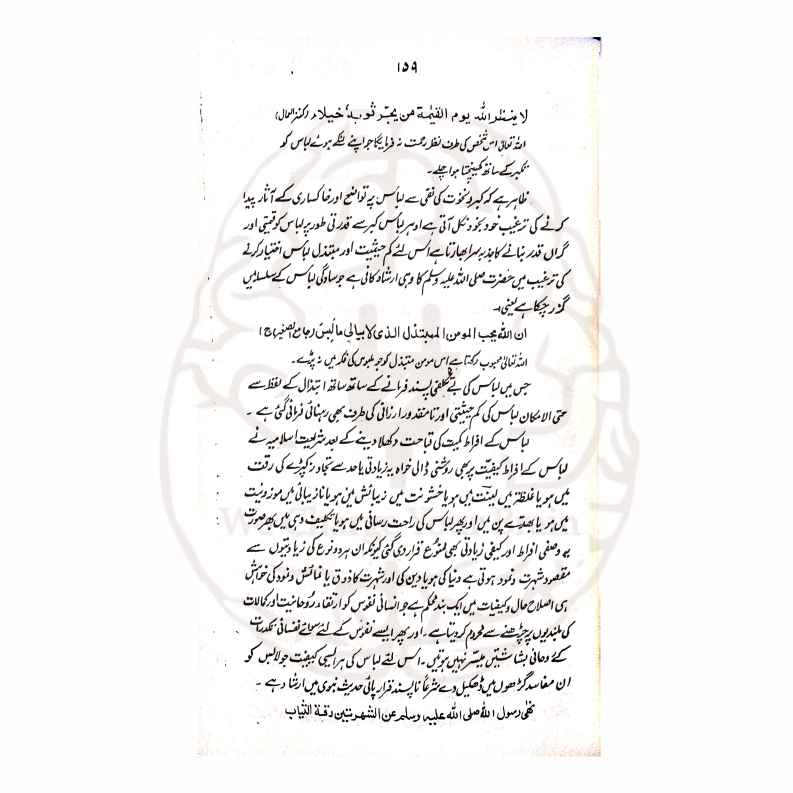 ۱۵۹
لا ينظر الله يوم القيٰمة من يجرّ ثوبهٗ خيلاء (کنز العمال)
اللہ تعالیٰ اس شخص کی طرف نظر رحمت نہ فرمائیگا جو اپنے لٹکے ہوئے لباس کو
تکبر کے ساتھ کھینچتا ہوا چلے۔
ظاہر ہے کہ کبر و نخوت کی نفی سے لباس پر تواضع اور خاکساری کے آثار پیدا
کرنے کی ترغیب خود بخود نکل آتی ہے اوہر لباس کبر سے قدرتی طور پر لباس کو قیمتی اور
گراں قدر بنانے کا جذبہ سر ابھارتا ہے اُس لئے کم حیثیت اور مبتذل لباس اختیار کرنے
کی ترغیب میں حضرت صلی اللہ علیہ وسلم کا وہی ارشاد کافی ہے جو سادگی لباس کے سلسلہ میں
گذر چکا ہے یعنی:۔
ان الله يحب المومن المبتذل الذی لا يبالی ما لبس (جامع الصغیر ج)
اللہ تعالیٰ محبوب رکھتا ہے اس مومن متبذل کو جو ملبوس کی فکر میں نہ پڑے۔
جس میں لباس کی بے تکلفی پسند فرمانے کے ساتھ ساتھ ابتذال کے لفظ سے
حتی الامکان لباس کی کم حیثیتی اور تا مقدور ارزانی کی طرف بھی رہنمائی فرمائی گئی ہے۔
لباس کے افراط کمیت کی قباحت دکھلا دینے کے بعد شریعت اسلامیہ نے
لباس کے افراط کیفیت پر بھی روشنی ڈالی خواہ یہ زیادتی یا حد سے تجاوز کپڑے کی رقت
میں ہو یا غلظۃ میں لینت میں ہو یا خشونت میں زیبائش میں ہو یا نازیبائی میں موزونیت
میں ہو یا بھدے پن میں اور پھر لباس کی راحت رسانی میں ہو یا تکلیف دہی میں بھر صورت
یہ وصفی افراط اور کیفی زیادتی بھی ممنوع قرار دی گئی کیونکہ ان ہر دو نوع کی زیادتیوں سے
مقصود شہرت و نمود ہوتی ہے دنیا کی ہو یا دین کی اور شہرت کا ذوق یا نمائش و نمود کی خواہش
ہی اصلاح حال و کیفیات میں ایک بند محکم ہے جو انسانی نفوس کو ارتقاء روحانیت اور کمالات
کی بلندیوں پر چڑھنے سے محروم کر دیتا ہے۔ اور پھر ایسے نفوس کے لئے سوائے نفسانی تکدرات
کے روحانی بشاشتیں میسر نہیں ہوتیں۔ اس لئے لباس کی ہر ایسی کیفیت جو لابس کو
ان مفاسد گڑھوں میں ڈھکیل دے شرعاً ناپسند قرار پائی حدیث نبوی میں ارشاد ہے۔
نھٰی رسول اللہ صلی اللہ علیہ وسلم عن الشھرتین دقة الثیاب